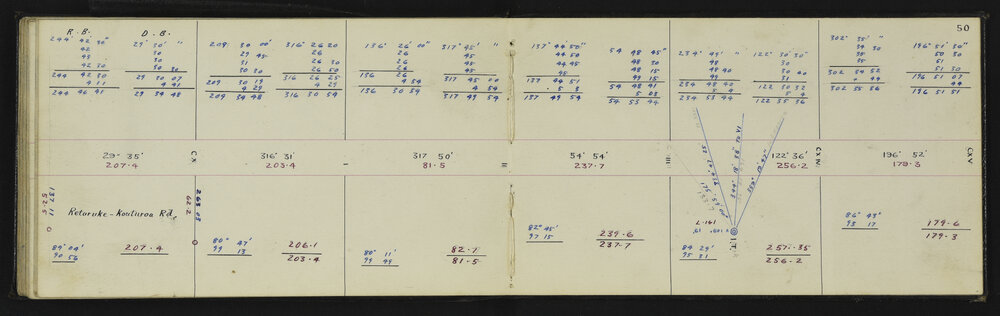 50
R. B. D. B.
244° 42' 30" 29° 30' "
42 30
43 30
42 30 30 30
244 42 30 29 30 07
4 11 4 41
244 46 41 29 34 48
209 30 00' 316° 26 20
29 45 26
31 26 30
30 30 26 50
209 30 19 316 26 25
4 29 4 29
209 34 48 316 30 54
136° 26' 00" 317° 45' "
26 45
26 45
26 45
136 26 317 45 00
4 54 4 54
136 30 54 317 49 54
137° 44' 50" 54 48 45"
44 50 48 30
44 45 48 15
45 49 15
137 44 51 54 48 41
5 3 5 03
137 49 54 54 53 44
234° 49' " 122° 30' 30"
48 30
48 40 30
49 31
234 48 40 122 30 32
5 4 5 4
234 53 44 122 35 36
302° 35' " 196° 51' 30"
34 30 50 30
35 51
35 51 30
302 34 52 196 51 07
+ 44 44
302 35 36 196 51 51
29° 35' 316° 31' 317 50' 54° 54' 122° 36' 196° 52'
207.4 203.4 81.5 237.7 256.2 179.3
CX II III CXIV CXV
344° 18' 55" TO VI
137 11
52.5
263 03
62.2
Retaruke - Kouturoa Rd.
L.161
I.T.
89° 04' 207.4
90 56
80° 47' 206.1
99 13 203.4
80° 11' 82.7
99 49 81.5
82° 45' 239.6
97 15 237.7
84 29' 257.35
95 31 256.2
86° 43' 179.6
93 17 179.3